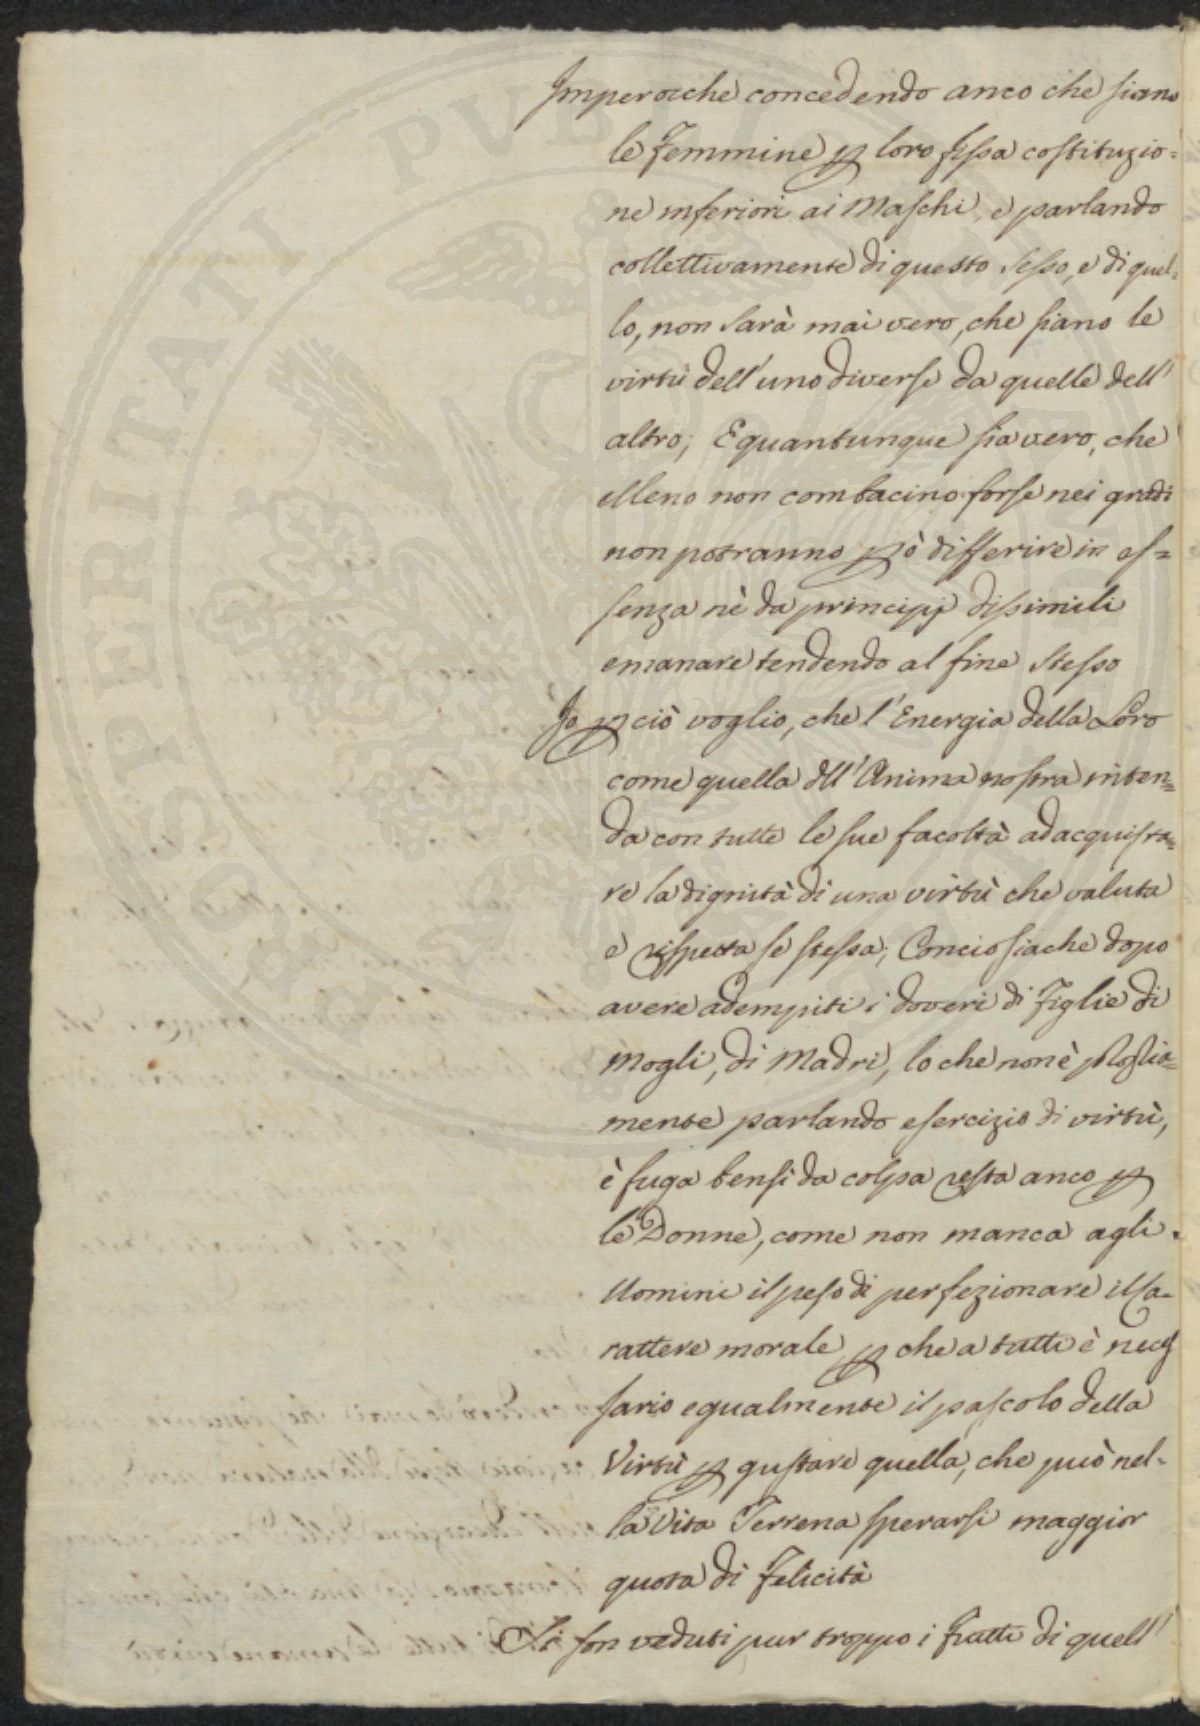 Imperocche concedendo anco che siano
le Femmine per loro fissa costituzio=
ne inferiori ai Maschi, e parlando
collettivamente di questo sesso, e di quel=
lo, non sarà mai vero, che siano le
virtù dell'uno diverse da quelle dell'
altro; E quantunque sia vero, che
elleno non combacino forse nei gradi
non potranno però differire in es=
senza nè da principj dissimili
emanare tendendo al fine stesso
Io perciò voglio, che l'Energia della Loro
come quella dell'Anima nostra inten=
da con tutte le sue facoltà ad acquista=
re la dignità di una virtù che valuta
e rispetta se stessa; Conciosiache dopo
avere adempiti i doveri di Figlie di
Mogli, di Madri, lo che non è propria=
mente parlando esercizio di virtù,
è fuga bensì da colpa resta anco per
le Donne, come non manca agli
Uomini il peso di perfezionare il Ca=
rattere morale per che a tutti è neces
sario egualmente il pascolo della
Virtù per gustare quella, che può nel=
la Vita Terrena sperarsi maggior
quota di Felicità
Si son veduti pur troppo i frutti di quell'
PROSPERITATI PUBLICAE